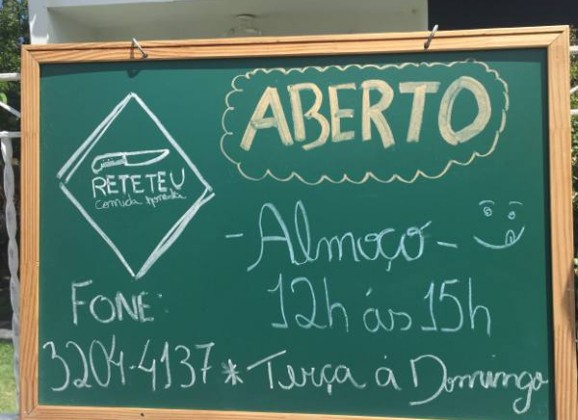 ABERTO
RETETEU
comida honesta
- Almoço -
12h ás 15h
FONE:
3204-4137 * Terça á Domingo